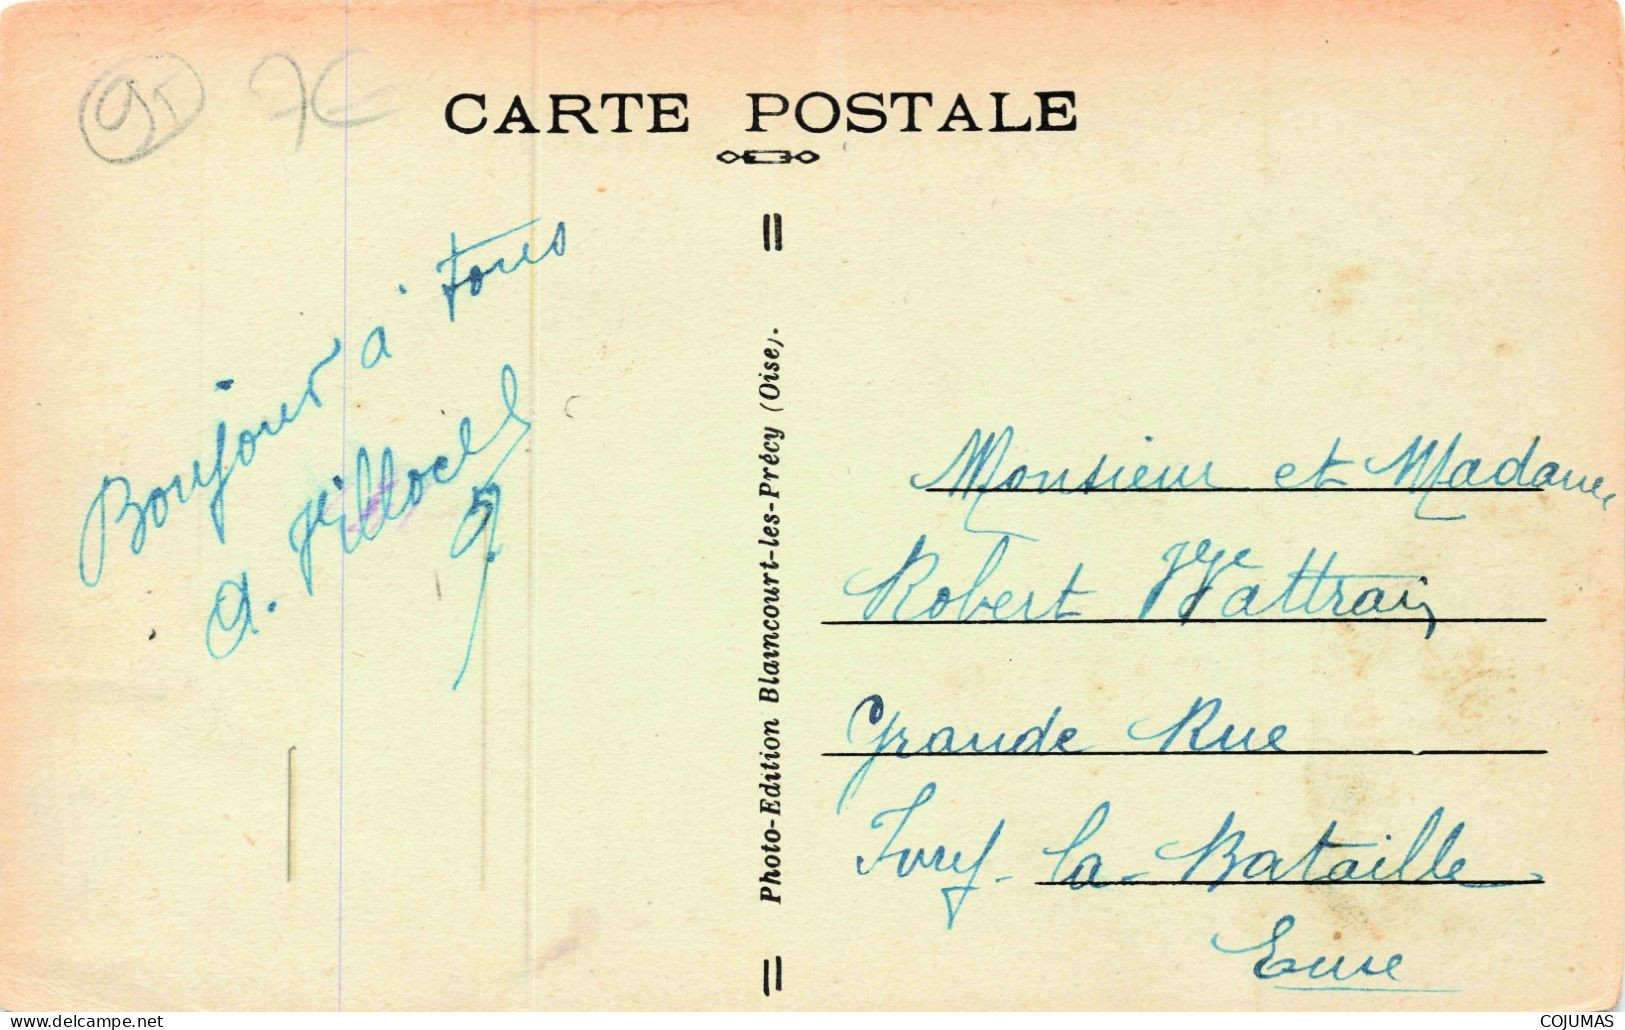 95 7€
CARTE POSTALE
Bonjour à Tous
a.
Photo-Edition Blaincourt-les-Précy (Oise).
Monsieur et Madame
Robert Wattrain
Grande Rue
Ivry-la-Bataille
Eure
www.delcampe.net
COJUMAS